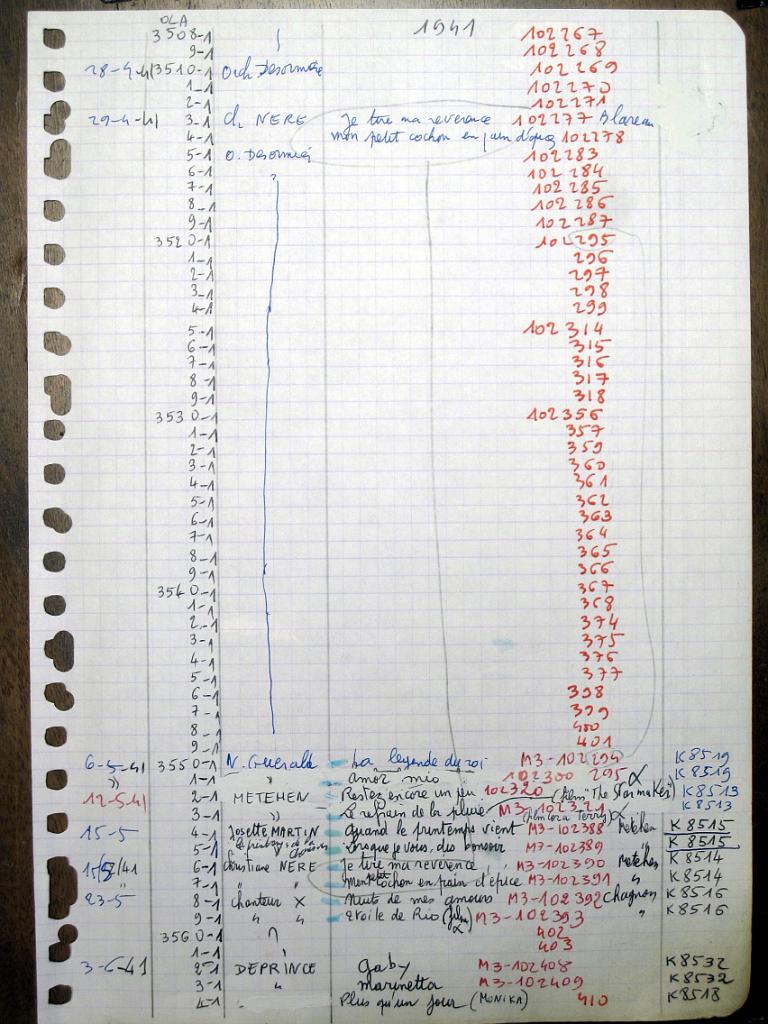 OLA 1941
3508-1 102267
9-1 102268
28-4-41 3510-1 Orch Desormière 102269
1-1 102270
2-1 102271
29-4-41 3-1 Ch. NERE Je tire ma reverence 102277 Blareau
4-1 mon petit cochon en pain d'epice 102278
5-1 O. Desormiè 102283
6-1 102284
7-1 ? 102285
8-1 102286
9-1 102287
3520-1 102295
1-1 296
2-1 297
3-1 298
4-1 299
5-1 102314
6-1 315
7-1 316
8-1 317
9-1 318
3530-1 102356
1-1 357
2-1 359
3-1 360
4-1 361
5-1 362
6-1 363
7-1 364
8-1 365
9-1 366
3540-1 367
1-1 368
2-1 374
3-1 375
4-1 376
5-1 377
6-1 398
7-1 399
8-1 400
9-1 401
6-5-41 3550-1 N. Guerald La legende du roi M3-102294 K8519
" 1-1 " amor mio 102300 295 K8519
12-5-41 2-1 METEHEN Restez encore un peu 102320 (film "The Starmaker") K8513
3-1 Le refrain de la pluie M3-102321 K8513
15-5 4-1 Josette MARTIN Quand le printemps vient M3-102388 Metehen K8515
5-1 Lorsque je vois, des M3-102389 " K8515
15/5/41 6-1 Christiane NERE Je tire ma reverence M3-102390 Metehen K8514
" 7-1 " Mon petit cochon en pain d'epice M3-102391 " K8514
23-5 8-1 chanteur X Nuits de mes amours M3-102392 Chagnon K8516
9-1 " " Etoile de Rio (film) M3-102393 " K8516
3560-1 402
1-1 403
3-6-41 2-1 DEPRINCE Gaby M3-102408 K8532
3-1 " marinetta M3-102409 K8532
4-1 Plus qu'un jour (MONIKA) 410 K8518